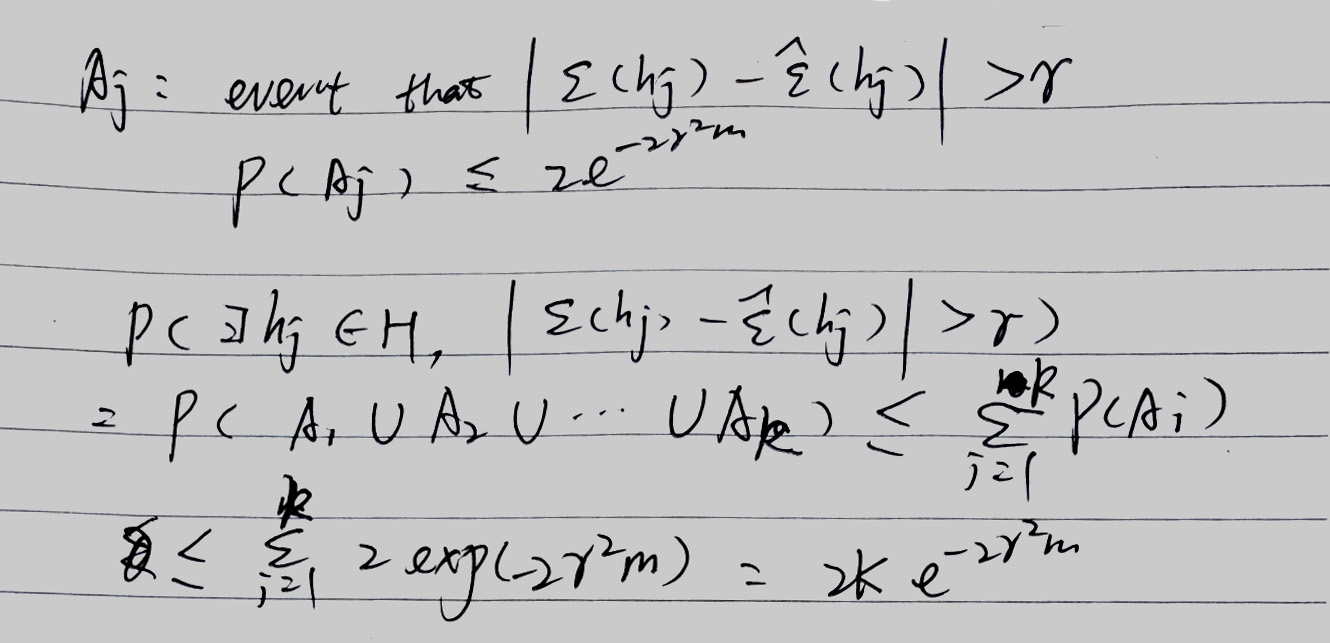 Aj : event that | Σ(hj) - Σ̂(hj) | > γ
P(Aj) ≤ 2e^{-2γ²m}
P(∃hj ∈ H, | Σ(hj) - Σ̂(hj) | > γ)
= P( A₁ ∪ A₂ ∪ ⋯ ∪ Ak ) ≤ Σ_{i=1}^{k} P(Ai)
≤ Σ_{i=1}^{k} 2 exp(-2γ²m) = 2k e^{-2γ²m}